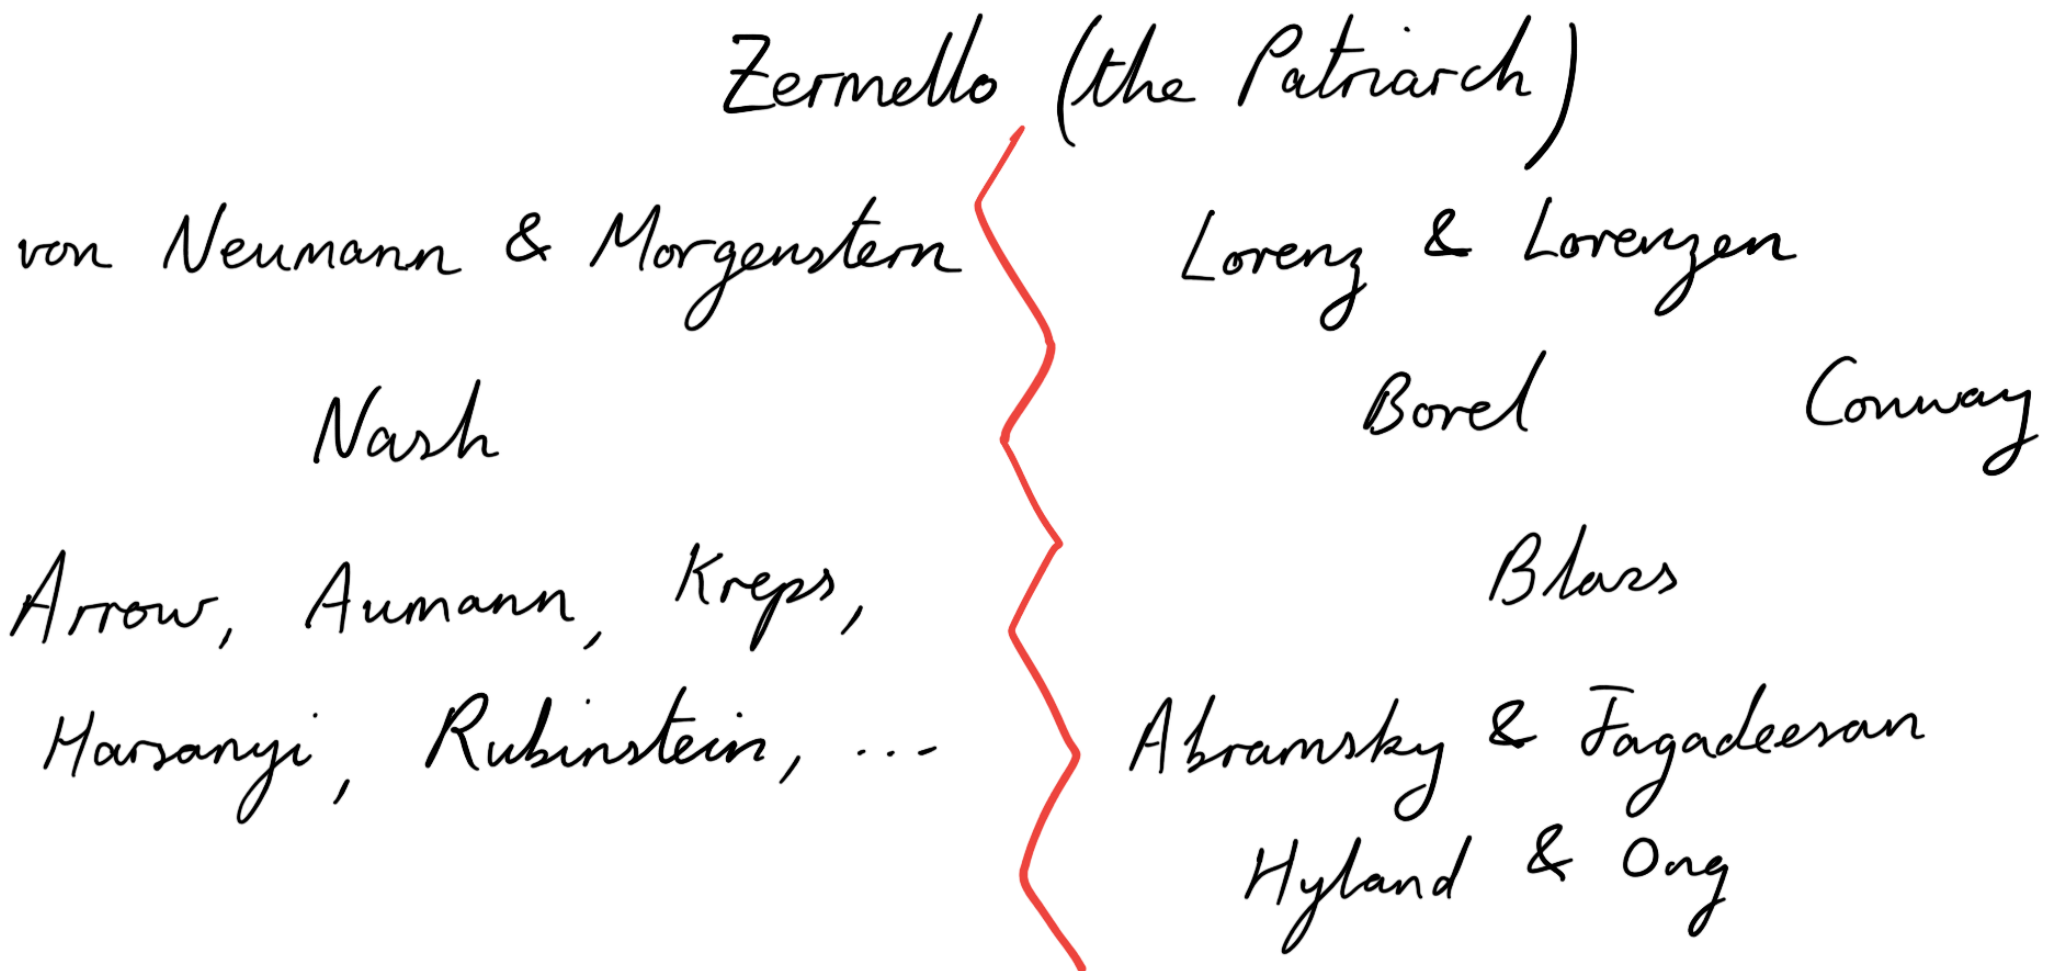 Zermello (the Patriarch)
von Neumann & Morgenstern
Nash
Arrow, Aumann, Kreps,
Harsanyi, Rubinstein, ...
Lorenz & Lorenzen
Borel Conway
Blass
Abramsky & Jagadeesan
Hyland & Ong